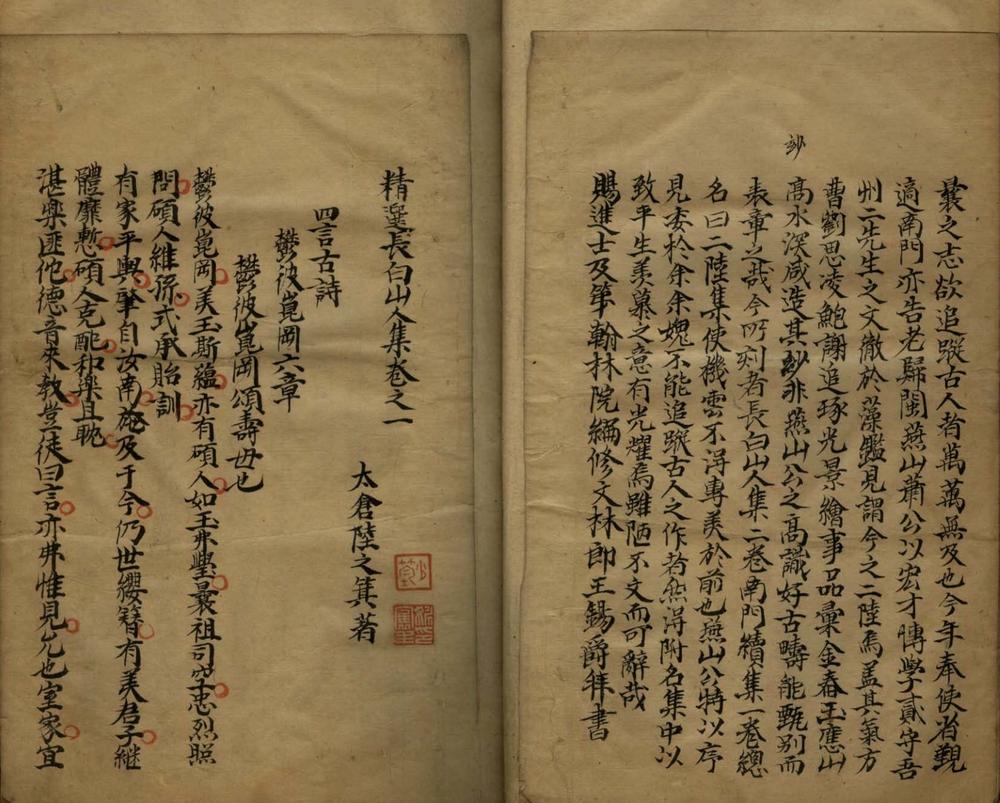 曩之志欲追蹤古人者萬萬無及也今年奉使省覲
適南門亦告老歸閩燕山蕭公以宏才博學貳守吾
州二先生之文徹於藻鑑見謂今之二陸焉盖其氣方
曹劉思凌鮑謝追琢光景繪事品彙金舂玉應山
高水深咸造其妙非燕山公之高識好古疇能甄別而
表章之哉今所刻者長白山人集二卷南門續集一卷總
名曰二陸集使機雲不淂專美於前也燕山公特以序
見委於余余媿不能追蹤古人之作者然淂附名集中以
致平生羡慕之意有光耀焉雖陋不文而可辭哉
賜進士及第翰林院編修文林郎王錫爵拜書
玅
精選長白山人集卷之一
太倉陸之箕著
四言古詩
鬱彼崑岡六章
鬱彼崑岡頌壽毋也
鬱彼崑岡美玉斯藴亦有碩人如玉弗舋曩祖司空忠烈照
問碩人維孫式承貽訓
有家平輿肇自汝南施及于今仍世纓簪有美君子継
體靡慙碩人克配和樂且耽
湛樂匪他德音來教豈徒曰言亦弗惟見允也室家宜